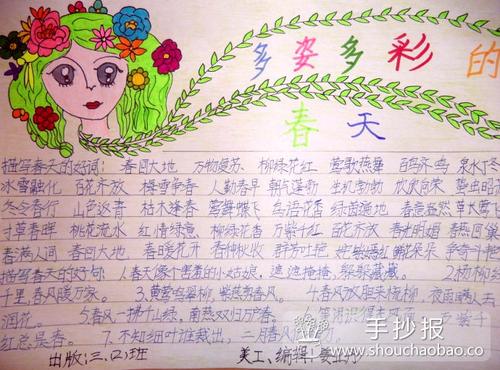 多姿多彩的
春天
描写春天的好词： 春回大地 万物复苏 柳绿花红 莺歌燕舞 百鸟齐鸣 泉水丁冬
冰雪融化 百花齐放 梅雪争春 人勤春早 朝气蓬勃 生机勃勃 欣欣向荣 惊虫昭
冬令春行 山色返青 枯木逢春 莺舞蝶飞 鸟语花香 绿茵遍地 春意盎然 草长莺飞
寸草春晖 桃花流水 红情绿意 柳绿花香 万紫千红 百花齐放 春光明媚 春燕回巢
春满人间 春回大地 春暖花开 春种秋收 群芳吐艳 姹紫嫣红 朵朵 争奇斗艳
描写春天的好句 1.春天像个害羞的小姑娘，遮遮掩掩，躲躲藏藏。 2.杨柳
千里，春风暖万家。 3.黄莺鸣翠柳，紫燕剪春风。 4.春风放胆来梳柳，夜雨瞒人去
润花。 5.春风一拂千山绿，南燕双归万户春。 等闲识得 万紫千
红总是春。 7.不知细叶谁裁出，二月春风
出版：三.(2)班 美工、编辑：
手抄报
www.shouchaobao.co